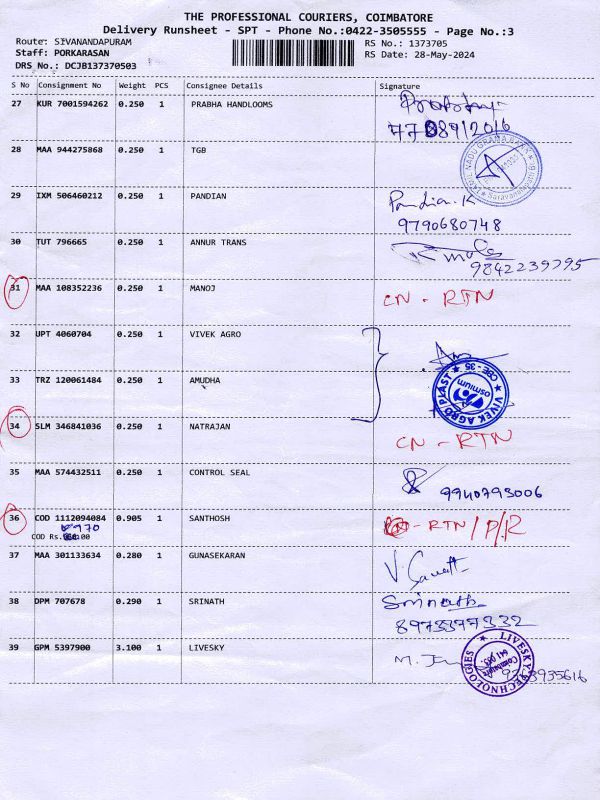 THE PROFESSIONAL COURIERS, COIMBATORE
Delivery Runsheet - SPT - Phone No.:0422-3505555 - Page No.:3
Route: SIVANANDAPURAM RS No.: 1373705
Staff: PORKARASAN RS Date: 28-May-2024
DRS No.: DCJB137370503
S No Consignment No Weight PCS Consignee Details Signature
27 KUR 7001594262 0.250 1 PRABHA HANDLOOMS
28 MAA 944275868 0.250 1 TGB
29 IXM 506460212 0.250 1 PANDIAN Pandian.K
9790680748
30 TUT 796665 0.250 1 ANNUR TRANS
9842239795
31 MAA 108352236 0.250 1 MANOJ CN - RTN
32 UPT 4060704 0.250 1 VIVEK AGRO
33 TRZ 120061484 0.250 1 AMUDHA VIVEK AGRO PLAST ★ CBE-35 ★ osmium
34 SLM 346841036 0.250 1 NATRAJAN CN - RTN
35 MAA 574432511 0.250 1 CONTROL SEAL 9940793006
36 COD 1112094084 0.905 1 SANTHOSH - RTN / P/R
970
COD Rs.
37 MAA 301133634 0.280 1 GUNASEKARAN
38 DPM 707678 0.290 1 SRINATH Srinath
8973397332
39 GPM 5397900 3.100 1 LIVESKY LIVESKY TECHNOLOGIES ★ Coimbatore